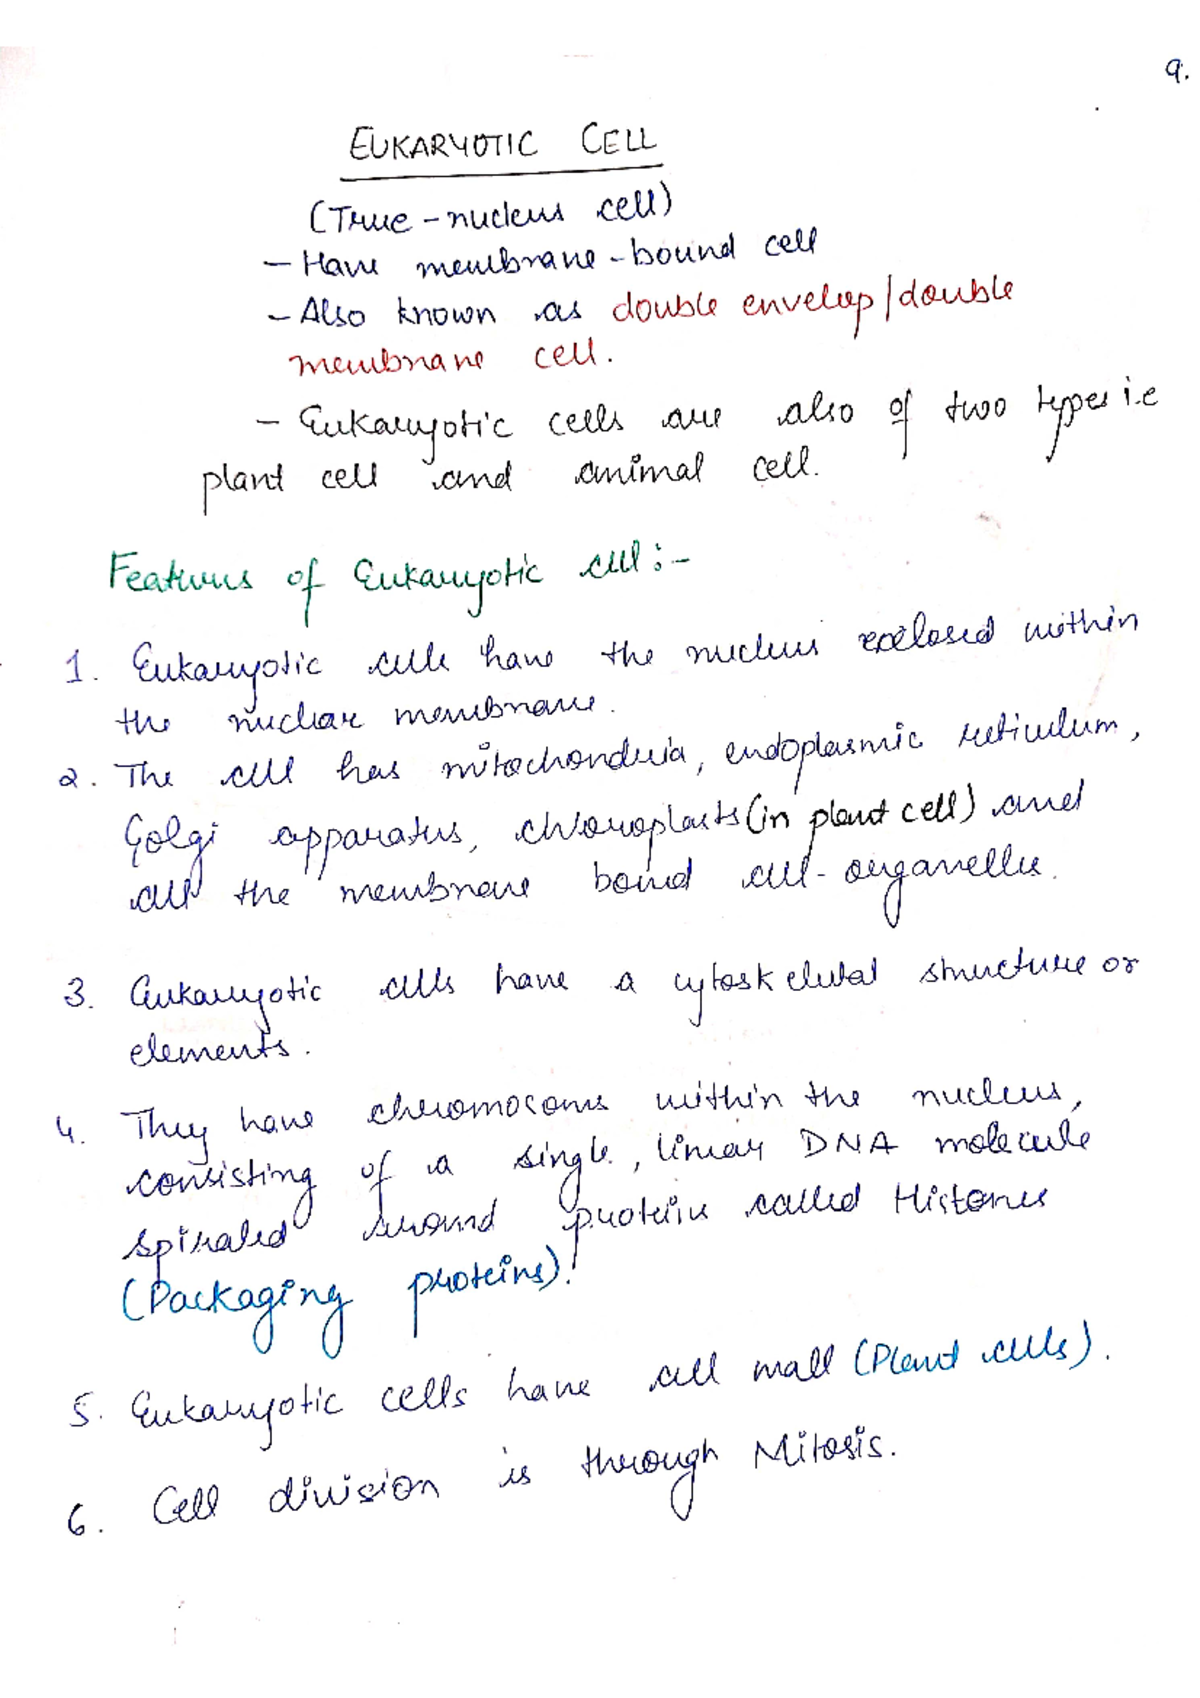 9.
EUKARYOTIC CELL
(True-nucleus cell)
- Have membrane-bound cell
- Also known as double envelop/double
membrane cell.
- Eukaryotic cells are also of two types i.e
plant cell and animal cell.
Features of Eukaryotic cell:-
1. Eukaryotic cells have the nucleus enclosed within
the nuclear membrane.
2. The cell has mitochondria, endoplasmic reticulum,
Golgi apparatus, chloroplasts (in plant cell) and
all the membrane bound cell-organelles.
3. Eukaryotic cells have a cytoskeletal structure or
elements.
4. They have chromosoms within the nucleus,
consisting of a single, linear DNA molecule
spiraled around proteins called Histones
(Packaging proteins).
5. Eukaryotic cells have cell wall (Plant cells).
6. Cell division is through Mitosis.